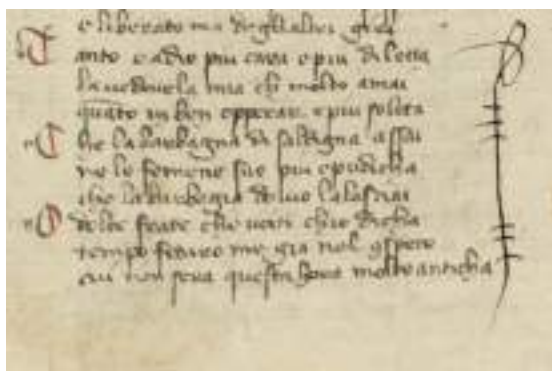 e liberato ma de glialtri giri
Tanto e adio piu cara e piu diletta
la uedouela mia chi molto amai
quāto in ben opperar e piu soletta
Che la barbagna di sardigna assai
ne le femene sue piu e pudicha
che la barbagia do uio la lasciai
O dolce frate che uoti chio dicha
tempo futuro me gia nel 9speto
cui non sera questa hora molto anticha